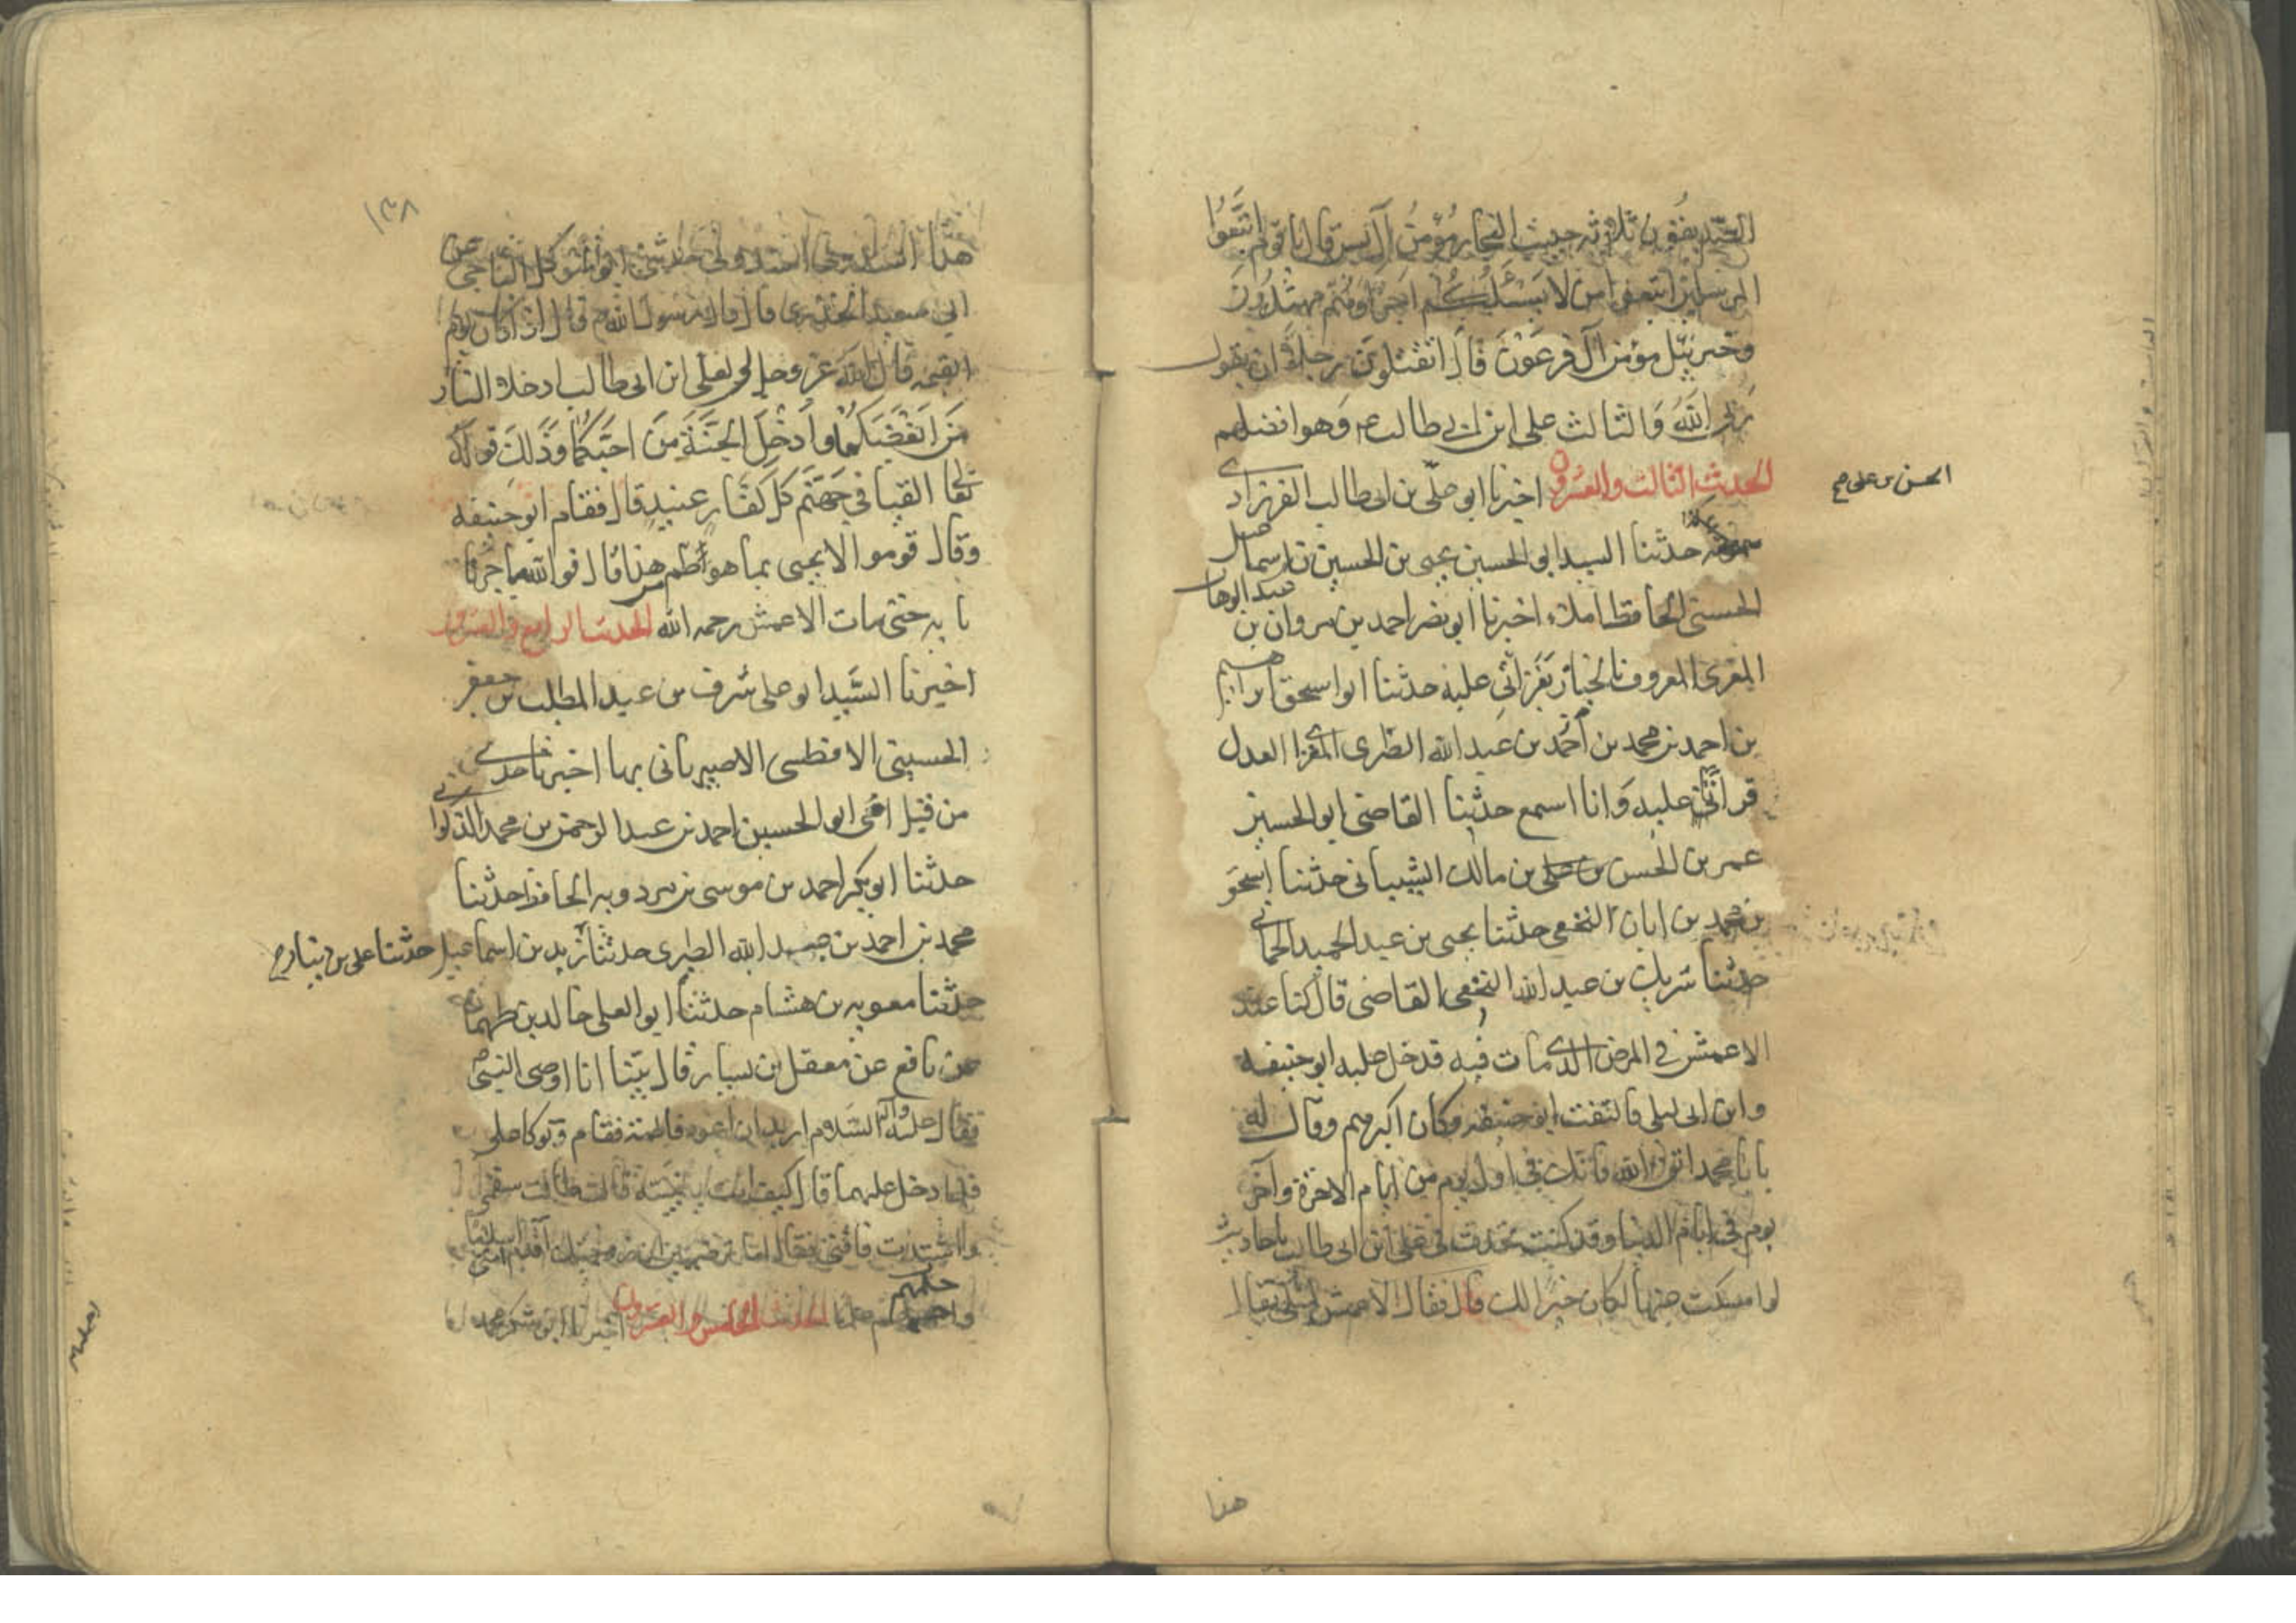 الصديقون ثلاثة حبيب النجار مؤمن آل يس قال يا قوم اتبعوا
المرسلين اتبعوا من لا يسئلكم اجرا وهم مهتدون
وخربيل مؤمن آل فرعون قال اتقتلون رجلا ان يقول
ربى الله والثالث على ابن ابى طالب ع وهو افضلهم
الحديث الثالث والعشرون اخبرنا ابو على بن ابى طالب الفرزادى
الحسن بن على صح
حدثنا السيد ابو الحسين يحيى بن الحسين بن اسماعيل
الحسنى الحافظ املاء اخبرنا ابو نصر احمد بن مروان بن عبد الوهاب
المقرى المعروف بالخباز بقراتى عليه حدثنا ابو اسحق ابراهيم
بن احمد بن محمد بن احمد بن عبد الله الطبرى المقرى العدل
قراتى عليه وانا اسمع حدثنا القاضى ابو الحسين
عمر بن الحسن بن على بن مالك الشيبانى حدثنا اسحق
بن محمد بن ابان النخعى حدثنا يحيى بن عبد الحميد الحمانى
حدثنا شريك بن عبد الله النخعى القاضى قال كنا عند
الاعمش فى المرض الذى مات فيه قدخل عليه ابو حنيفه
وابن ابى ليلى فالتفت ابو حنيفه وكان اكبرهم وقال له
يا با محمد اتق الله فانك فى اول يوم من ايام الاخرة وآخر
يوم فى ايام الدنيا وقد كنت تحدث فى على ابن ابى طالب باحاديث
لو امسكت عنها لكان خيرا لك قال فقال الاعمش لمثلى يقال
هذا
١٣٨
هذا اسندونى اسندونى حدثنى ابو المتوكل الناجى عن
ابى سعيد الخدرى قال قال رسول الله ص قال اذا كان يوم
القيمه قال الله عز وجل لى ولعلى ابن ابى طالب ادخلا النار
من ابغضكما وادخلا الجنة من احبكما وذلك قوله
تعا القيا فى جهنم كل كفار عنيد قال فقام ابو حنيفه
وقال قوموا لا يجيى بما هو اطم من هذا قال فوالله ما جزنا
بابه حتى مات الاعمش رحمه الله الحديث الرابع والعشرون
اخبرنا السيد ابو على شرف بن عبد المطلب بن جعفر
الحسينى الافطسى الاصبهانى بها اخبرنا جدى
من قبل امى ابو الحسين احمد بن عبد الرحمن بن محمد الذكوانى
حدثنا ابو بكر احمد بن موسى بن مردويه الحافظ حدثنا
محمد بن احمد بن عبد الله الطبرى حدثنا زيد بن اسماعيل حدثنا على بن دينار صح
حدثنا معويه بن هشام حدثنا ابو العلى خالد بن طهمان
عن نافع عن معقل بن يسار قال بينا انا اوصى النبى ص
فقال عليه وآله السلام اريد ان اعود فاطمة فقام وتوكا على
فلما دخل عليهما قال كيف انت يا بنية قالت طالت سقمى
واشتدت فاقتى فقال اما ترضين ان زوجتك اقدم امتى اسلاما
واحلمهم علما الحديث الخامس والعشرون اخبرنا ابو شكر محمد